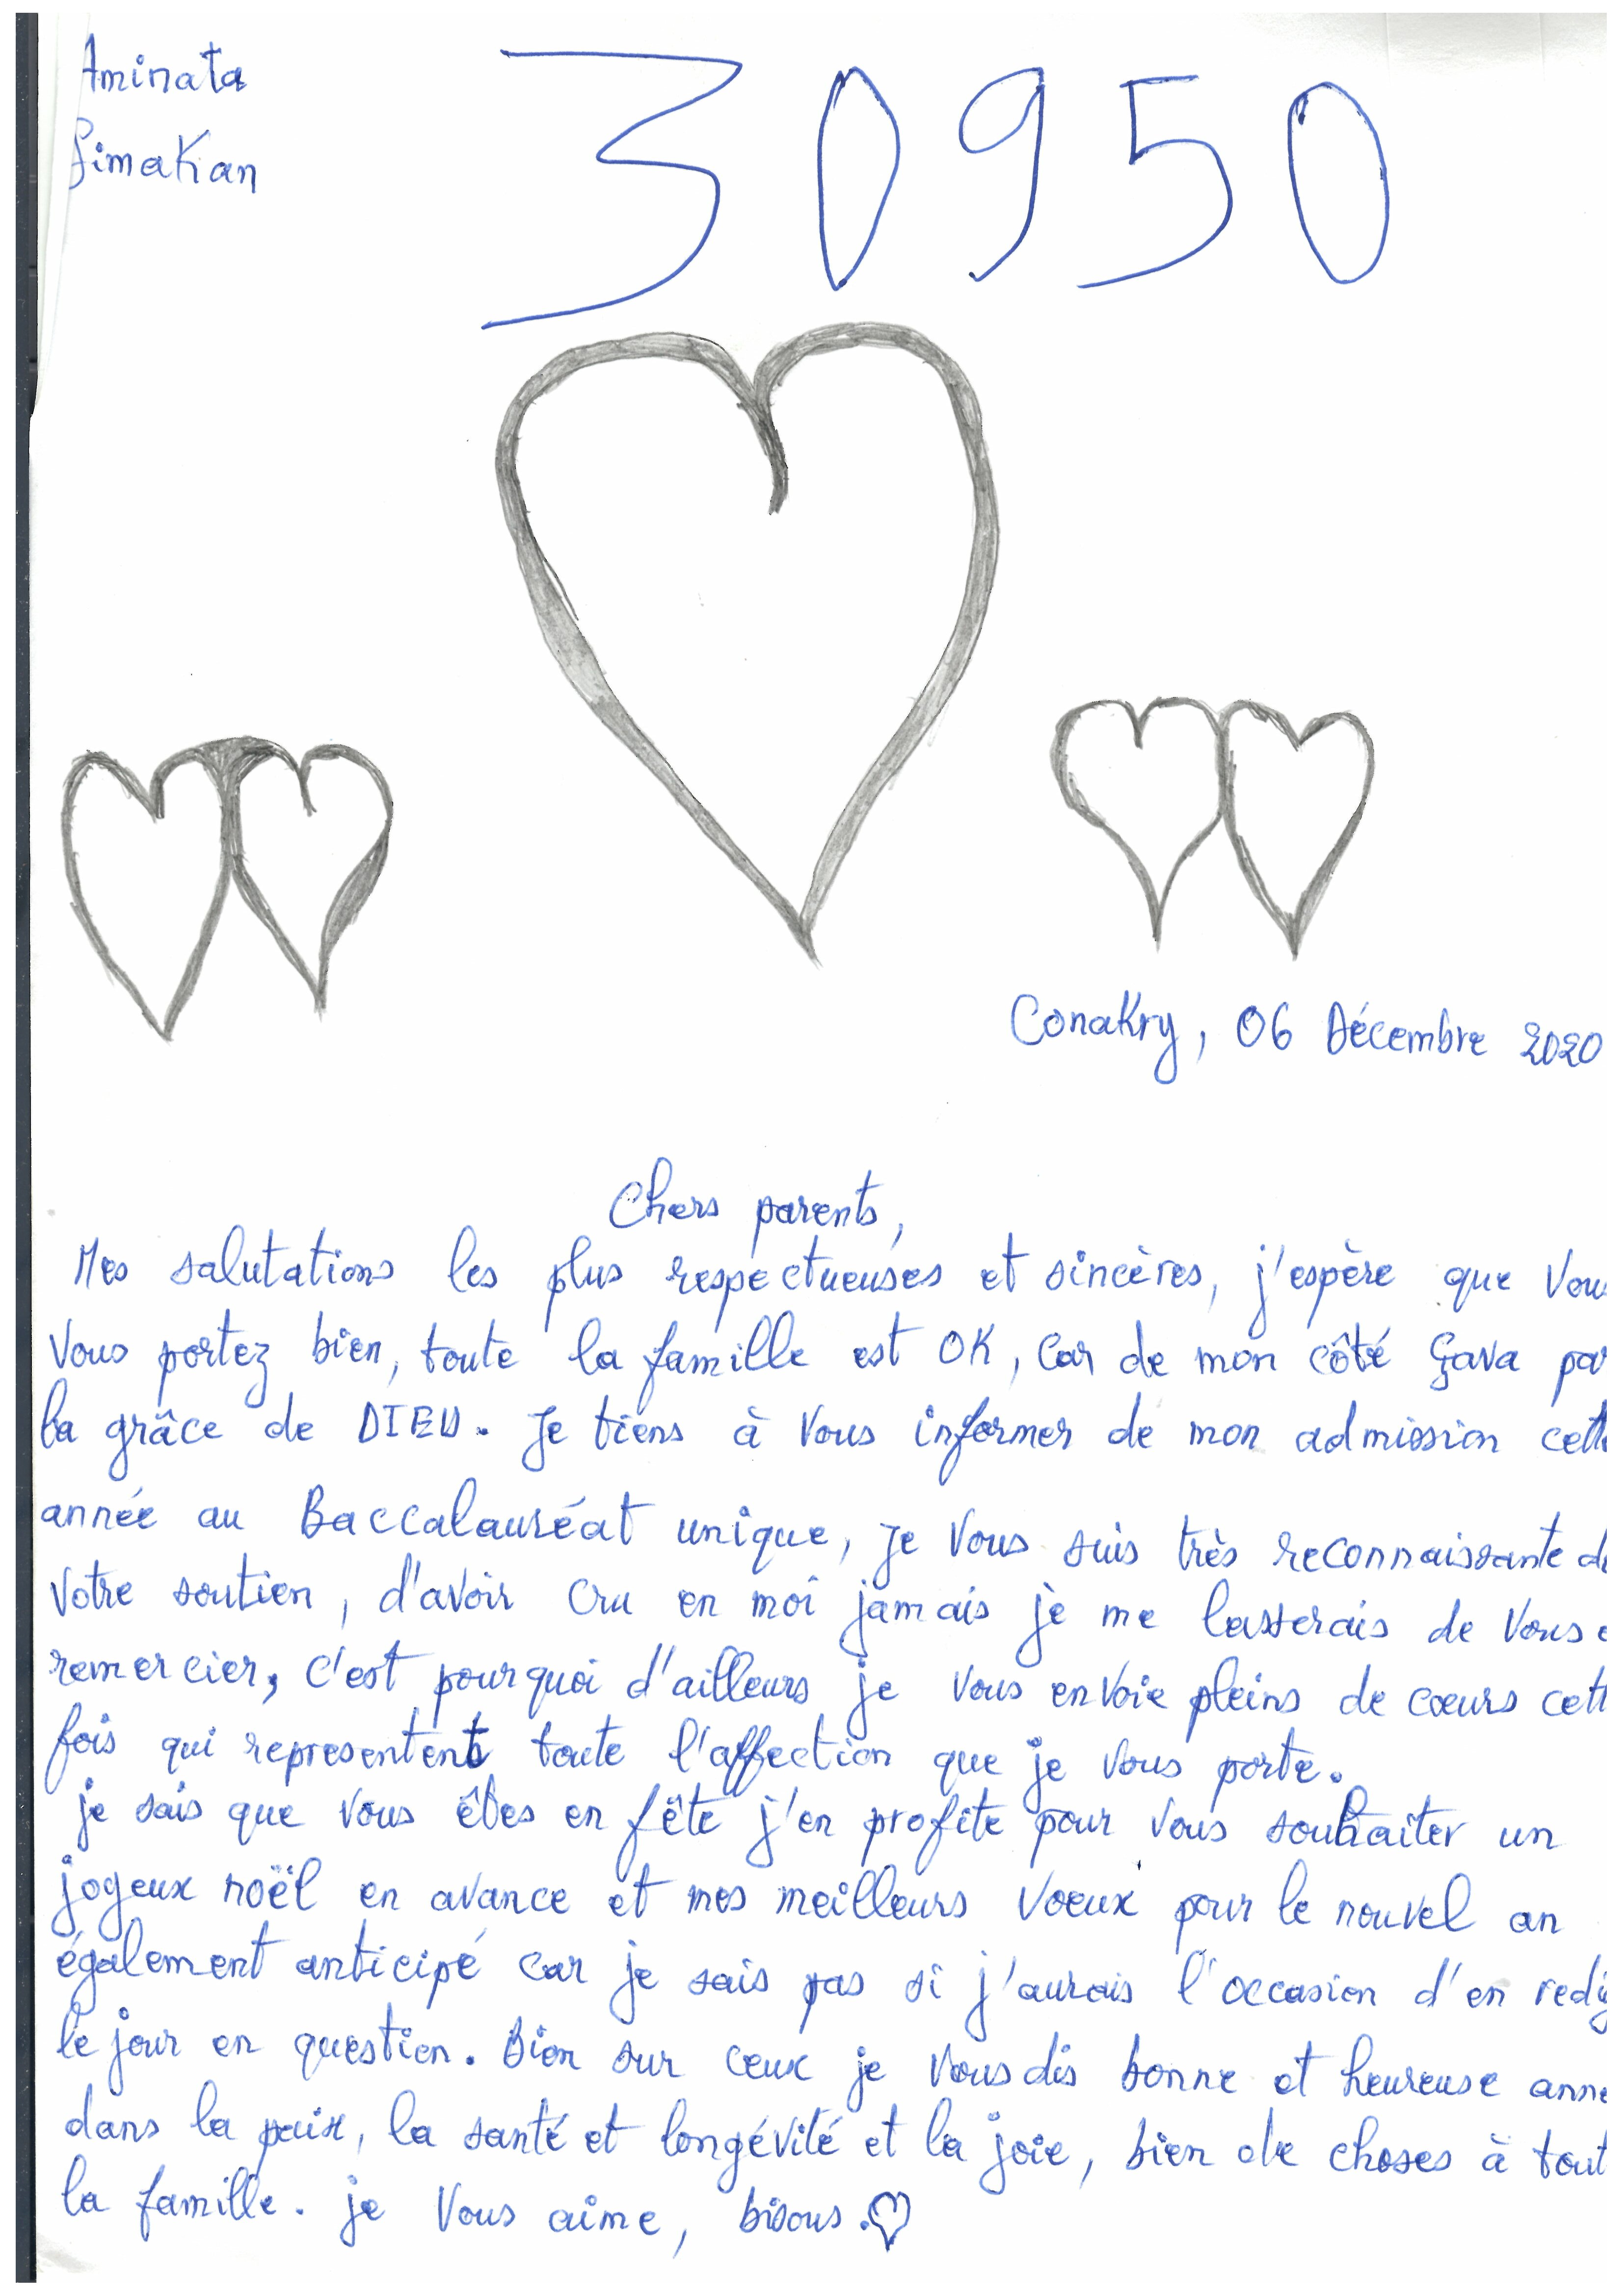 Aminata
Simakan
30950
Conakry, 06 Décembre 2020
Chers parents,
Mes salutations les plus respectueuses et sincères, j'espère que vous
vous portez bien, toute la famille est OK, car de mon côté çava par
la grâce de DIEU. Je tiens à vous informer de mon admission cette
année au Baccalauréat unique, je vous suis très reconnaissante de
votre soutien, d'avoir cru en moi jamais je me lasserais de vous
remercier, c'est pourquoi d'ailleurs je vous envoie pleins de cœurs cette
fois qui representent toute l'affection que je vous porte.
je sais que vous êtes en fête j'en profite pour vous souhaiter un
joyeux noël en avance et mes meilleurs voeux pour le nouvel an
également anticipé car je sais pas si j'aurais l'occasion d'en redig
le jour en question. Bien sur ceux je vous dis bonne et heureuse anné
dans la paix, la santé et longévité et la joie, bien de choses à tout
la famille. je vous aime, bisous.